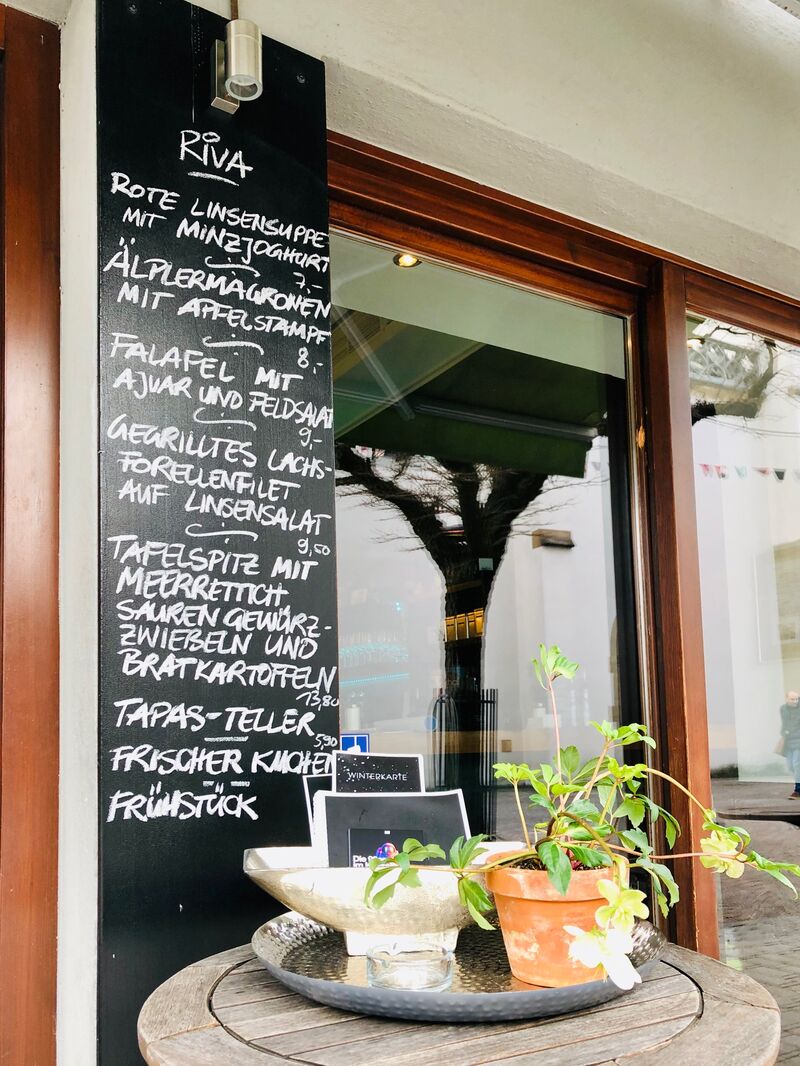 RIVA
ROTE LINSENSUPPE
MIT MINZJOGHURT
7,-
ÄLPLERMAGRONEN
MIT APFELSTAMPF
8,-
FALAFEL MIT
AJVAR UND FELDSALAT
9,-
GEGRILLTES LACHS-
FORELLENFILET
AUF LINSENSALAT
9,50
TAFELSPITZ MIT
MEERRETTICH
SAUREN GEWÜRZ-
ZWIEBELN UND
BRATKARTOFFELN
13,80
TAPAS-TELLER
5,90
FRISCHER KUCHEN
FRÜHSTÜCK
WINTERKARTE